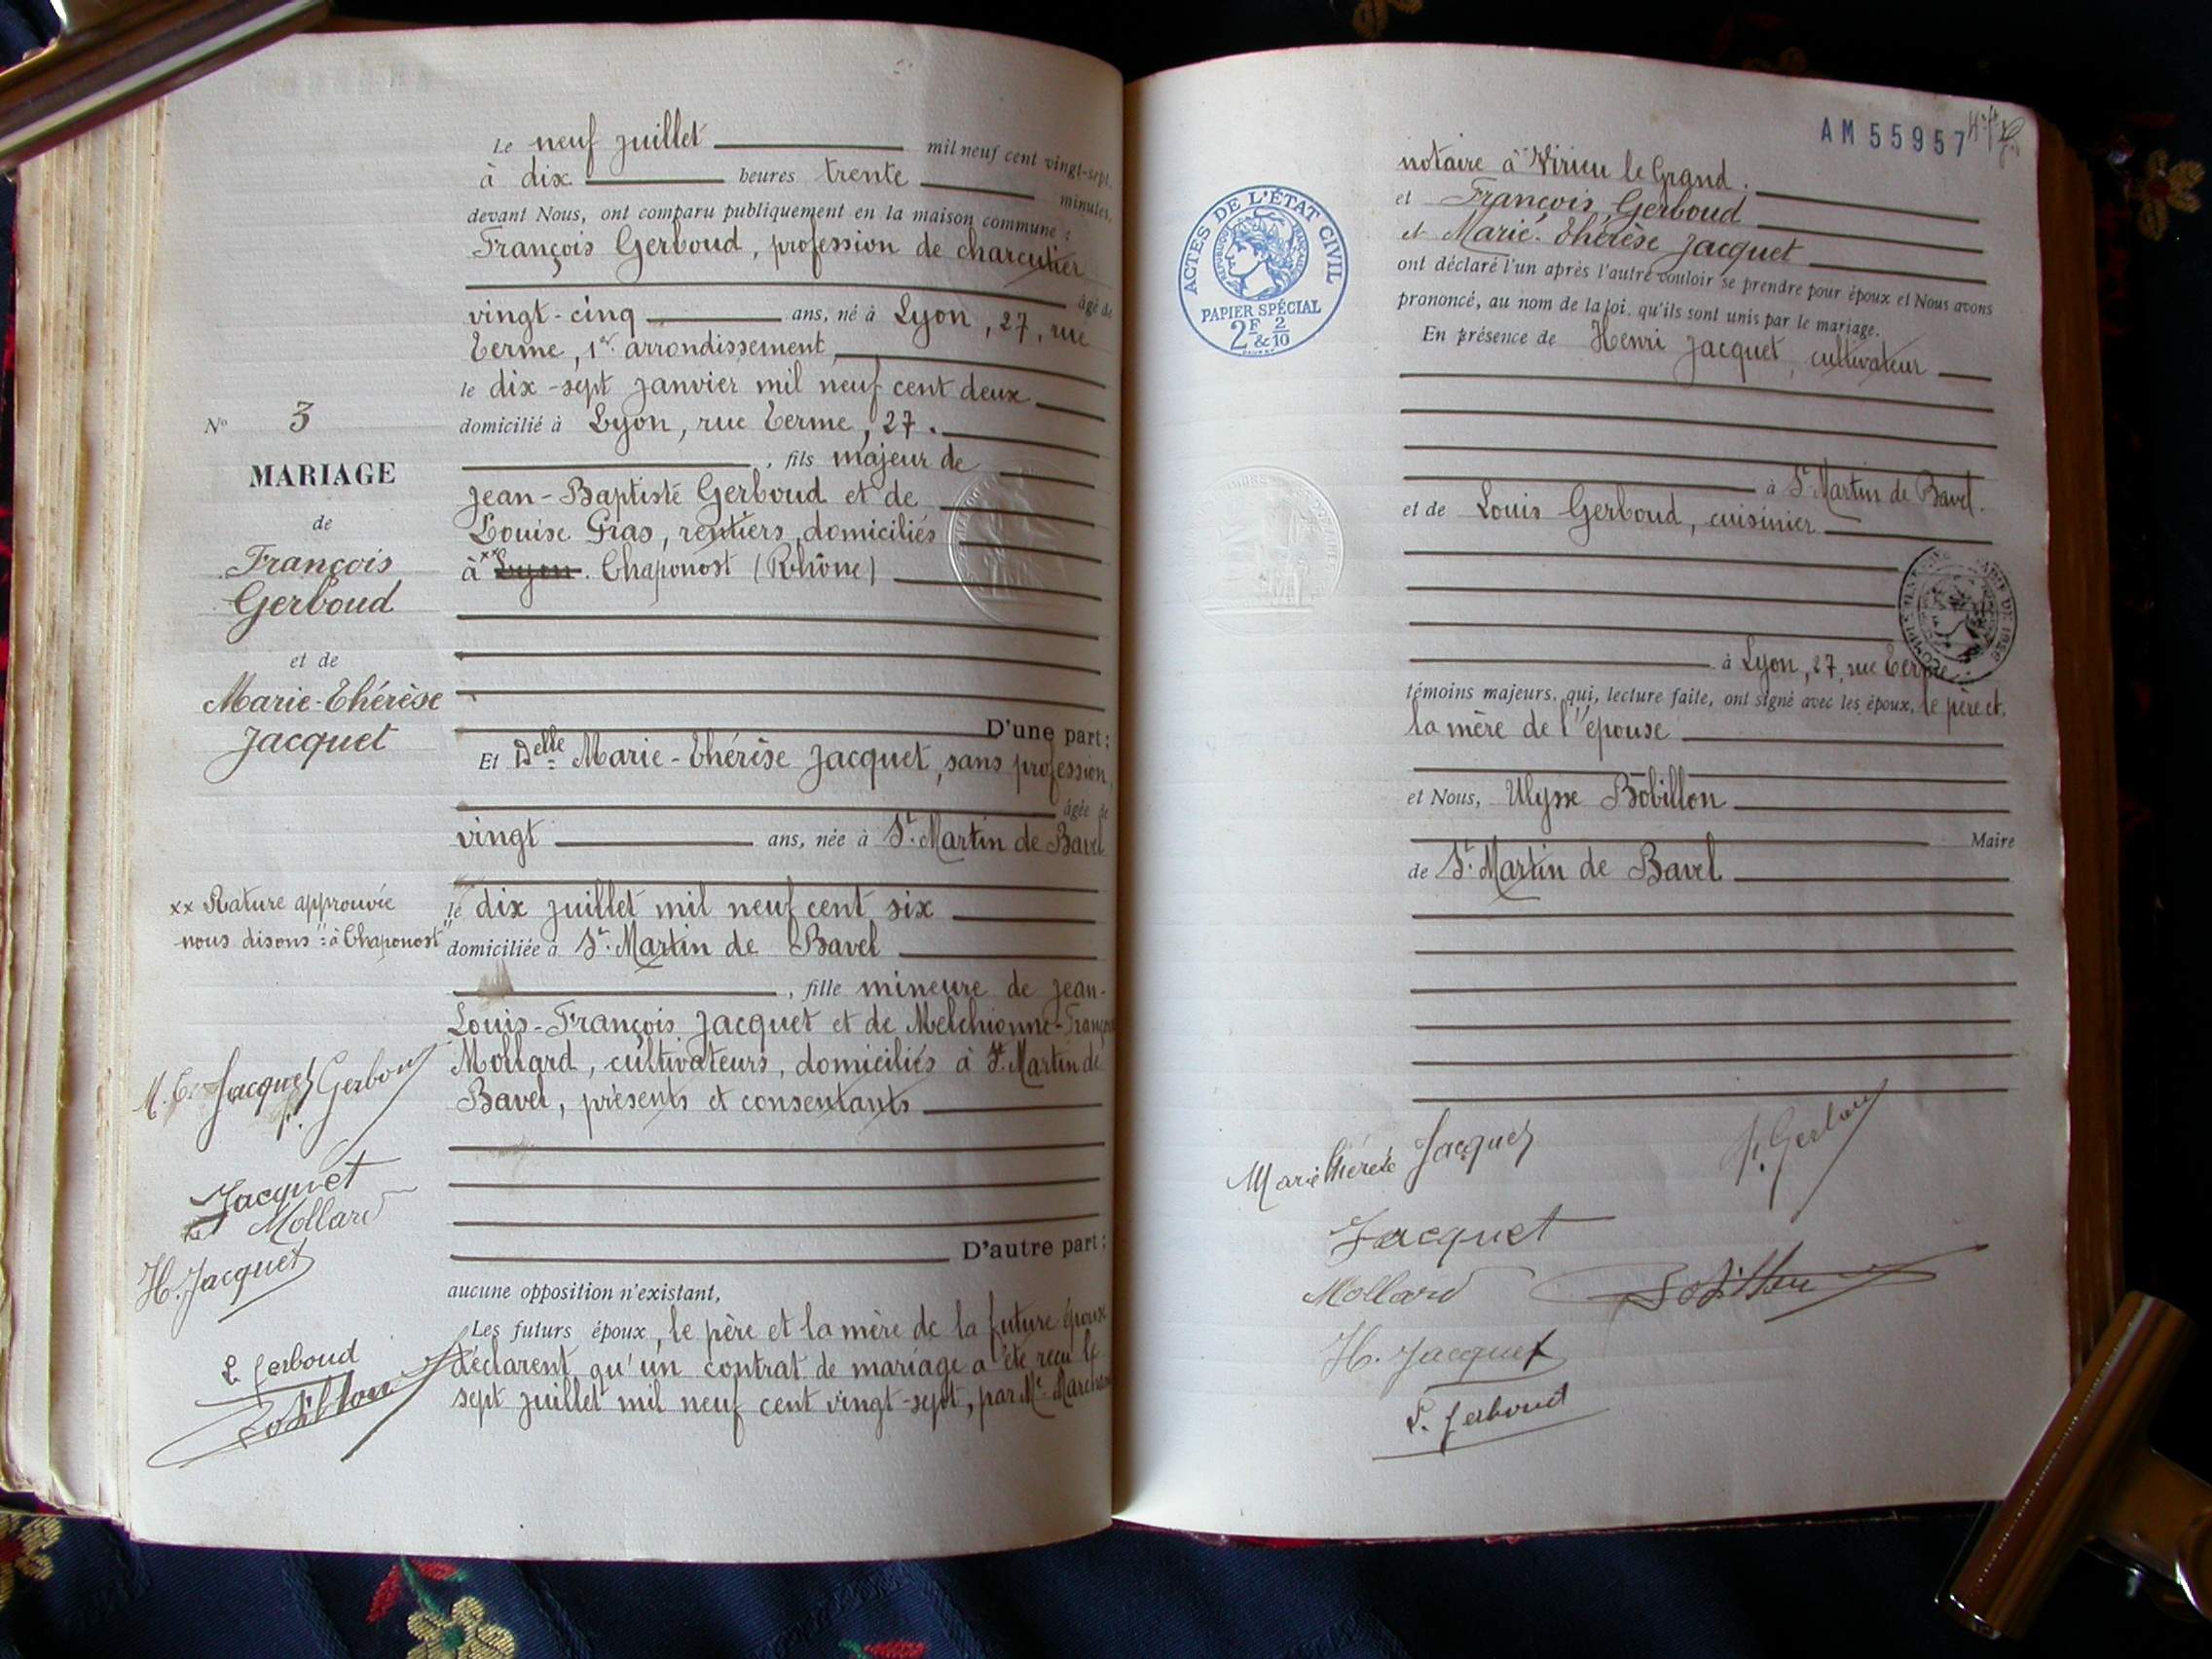 Le neuf juillet mil neuf cent vingt-sept,
à dix heures trente minutes,
devant Nous, ont comparu publiquement en la maison commune :
François Gerboud, profession de charcutier
âgé de
vingt-cinq ans, né à Lyon, 27, rue
Terme, 1er arrondissement,
le dix-sept janvier mil neuf cent deux
domicilié à Lyon, rue Terme, 27.
, fils majeur de
Jean-Baptiste Gerboud et de
Louise Gras, rentiers, domiciliés
à xx Lyon. Chaponost (Rhône)
D'une part ;
Et Delle Marie-Thérèse Jacquet, sans profession,
âgée de
vingt ans, née à St. Martin de Bavel
le dix juillet mil neuf cent six
domiciliée à St. Martin de Bavel
, fille mineure de Jean-
Louis-François Jacquet et de Melchionne-
Mollard, cultivateurs, domiciliés à St. Martin de
Bavel, présents et consentants
D'autre part ;
aucune opposition n'existant,
Les futurs époux, le père et la mère de la future épouse
déclarent qu'un contrat de mariage a été reçu le
sept juillet mil neuf cent vingt-sept, par Me
No 3
MARIAGE
de
François
Gerboud
et de
Marie-Thérèse
Jacquet
xx Rature approuvée
nous disons "à Chaponost"
M. T. Jacquet Gerboud
f.
Jacquet
Mollard
H. Jacquet
L. Gerboud
Bobillon
AM 55957
notaire à Virieu le Grand.
et François Gerboud
et Marie-Thérèse Jacquet
ont déclaré l'un après l'autre vouloir se prendre pour époux et Nous avons
prononcé, au nom de la loi, qu'ils sont unis par le mariage.
En présence de Henri Jacquet, cultivateur
à St Martin de Bavel.
et de Louis Gerboud, cuisinier
à Lyon, 27, rue Terme
témoins majeurs, qui, lecture faite, ont signé avec les époux, le père et,
la mère de l'épouse
et Nous, Ulysse Bobillon
Maire
de St. Martin de Bavel
ACTES DE L'ÉTAT CIVIL
RÉPUBLIQUE FRANÇAISE
PAPIER SPÉCIAL
2F & 2/10
Marie Thérèse Jacquet
f. Gerboud
Jacquet
Mollard
Bobillon
H. Jacquet
L. Gerboud